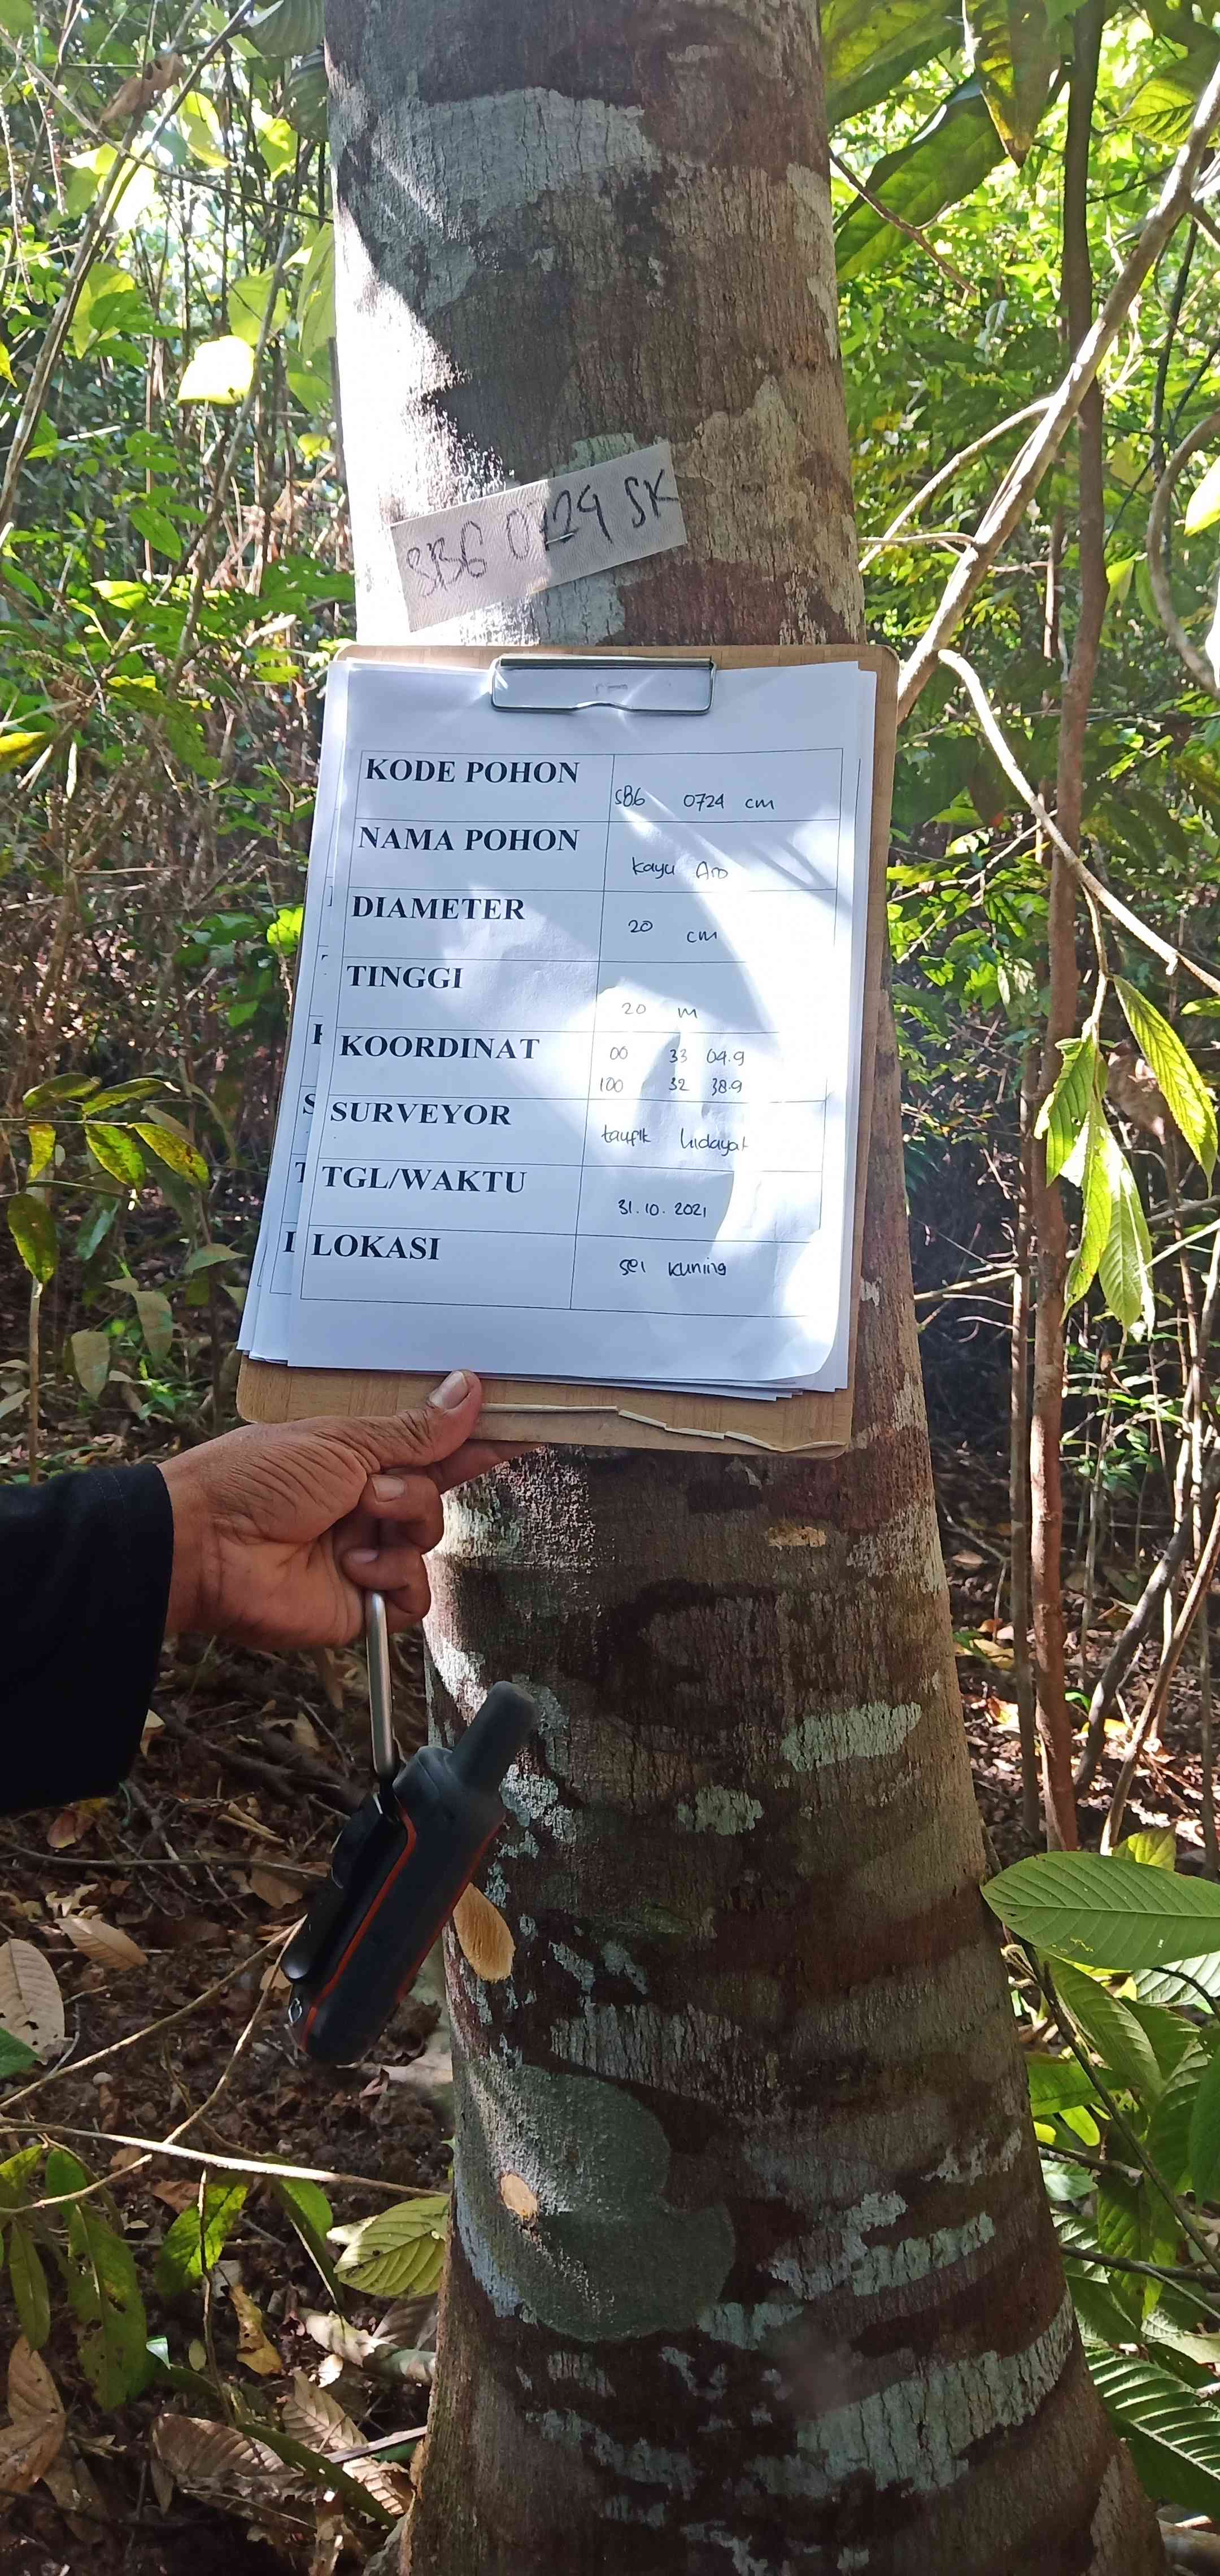 SBG 0724 SK
KODE POHON SBG 0724 cm
NAMA POHON Kayu Aro
DIAMETER 20 cm
TINGGI 20 m
KOORDINAT 00 33 04.9
100 32 38.9
SURVEYOR taufik hidayat
TGL/WAKTU 31.10.2021
LOKASI sei kuning